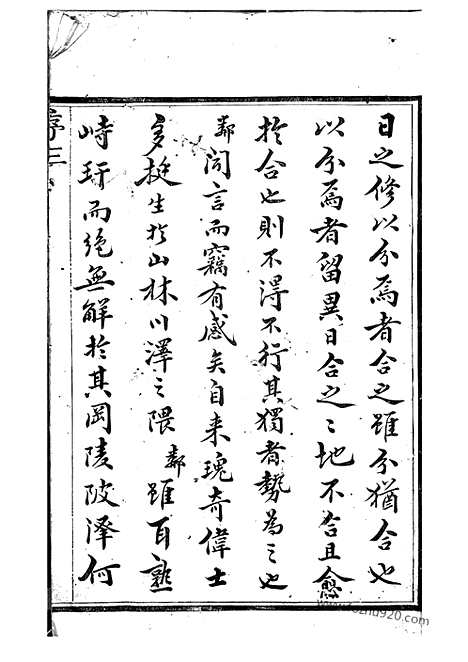 日之修以分焉者合之雖分猶合也
以分焉者留異日合之之地不合且愈
於合也則不得不行其獨者勢為之也
鄰聞言而竊有感矣自来瑰奇偉士
多挺生於山林川澤之隈鄰雖耳熟
峙玗而絶無解於其岡陵陂澤何
序三